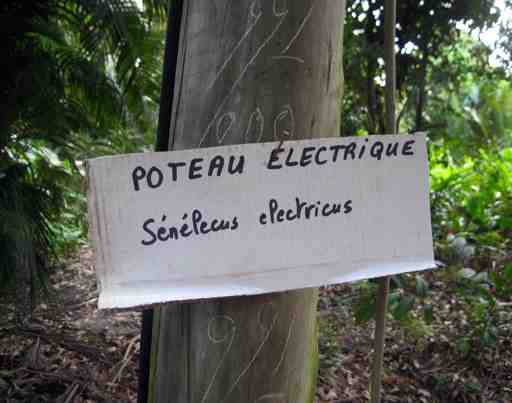 POTEAU ÉLECTRIQUE
Sénélecus electricus